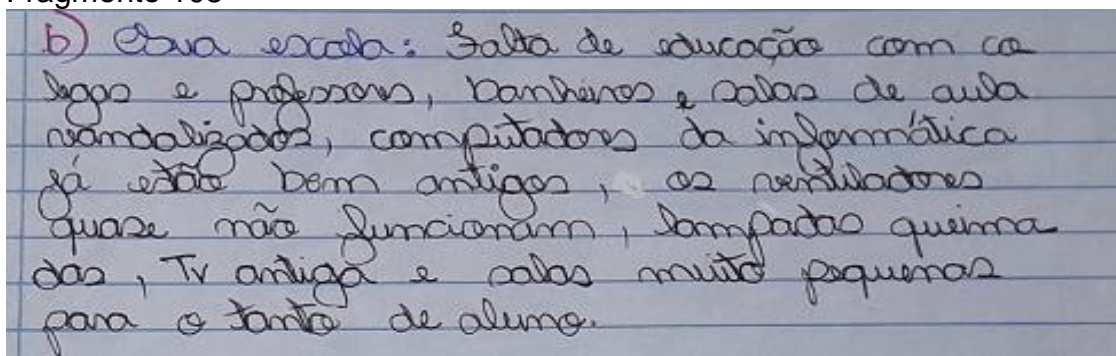 b) Sua escola: Falta de educação com co
legas e professores, banheiros e salas de aula
vandalizados, computadores da informática
já estão bem antigos, os ventiladores
quase não funcionam, lampadas queima
das, Tv antiga e salas muito pequenas
para o tanto de aluno.